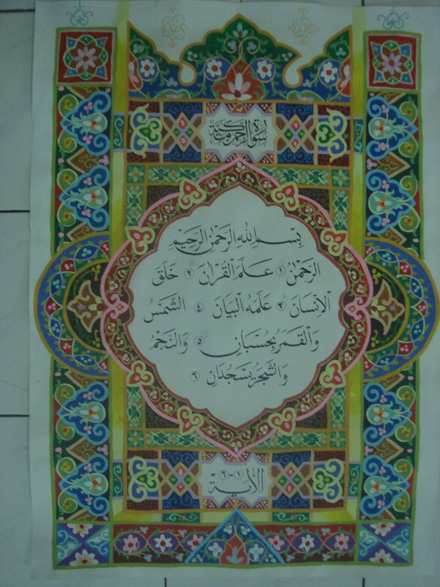 سورة الرحمن مكية
بِسْمِ اللهِ الرَّحْمٰنِ الرَّحِيْمِ
الرَّحْمٰنُ ١ عَلَّمَ الْقُرْاٰنَ ٢ خَلَقَ
الْاِنْسَانَ ٣ عَلَّمَهُ الْبَيَانَ ٤ الشَّمْسُ
وَالْقَمَرُ بِحُسْبَانٍ ٥ وَالنَّجْمُ
وَالشَّجَرُ يَسْجُدَانِ ٦
الآية